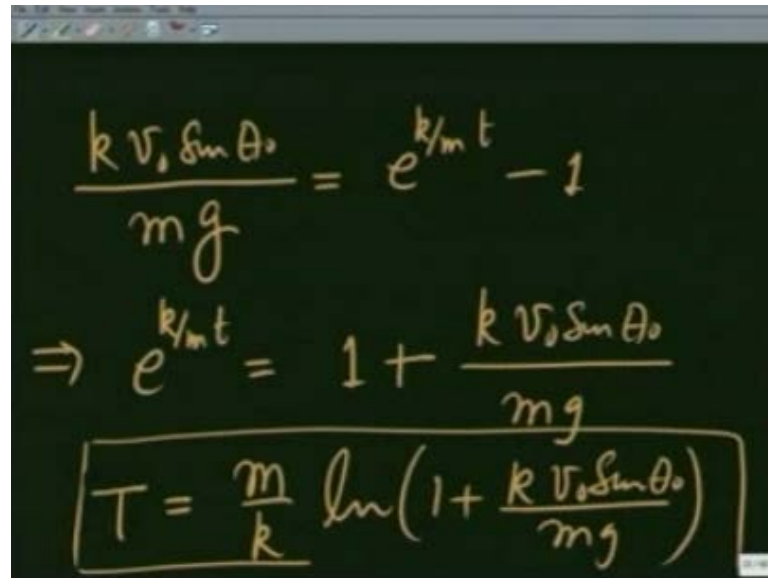 k v₀ Sin θ₀ / mg = e^{k/m t} - 1
⇒ e^{k/m t} = 1 + k v₀ Sin θ₀ / mg
T = m/k ln(1 + k v₀ Sin θ₀ / mg)